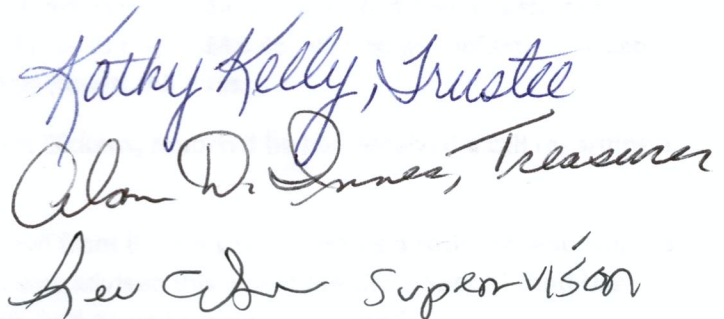 Kathy Kelly, Trustee
Alan D. Innes, Treasurer
Supervisor